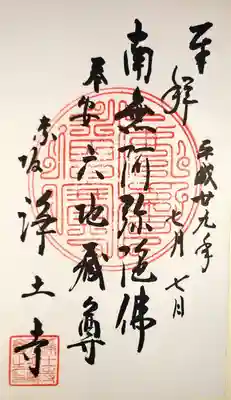 奉拝
平成廿九年
七月七日
南無阿弥陀佛
奉安 六地蔵尊
赤坂 浄土寺